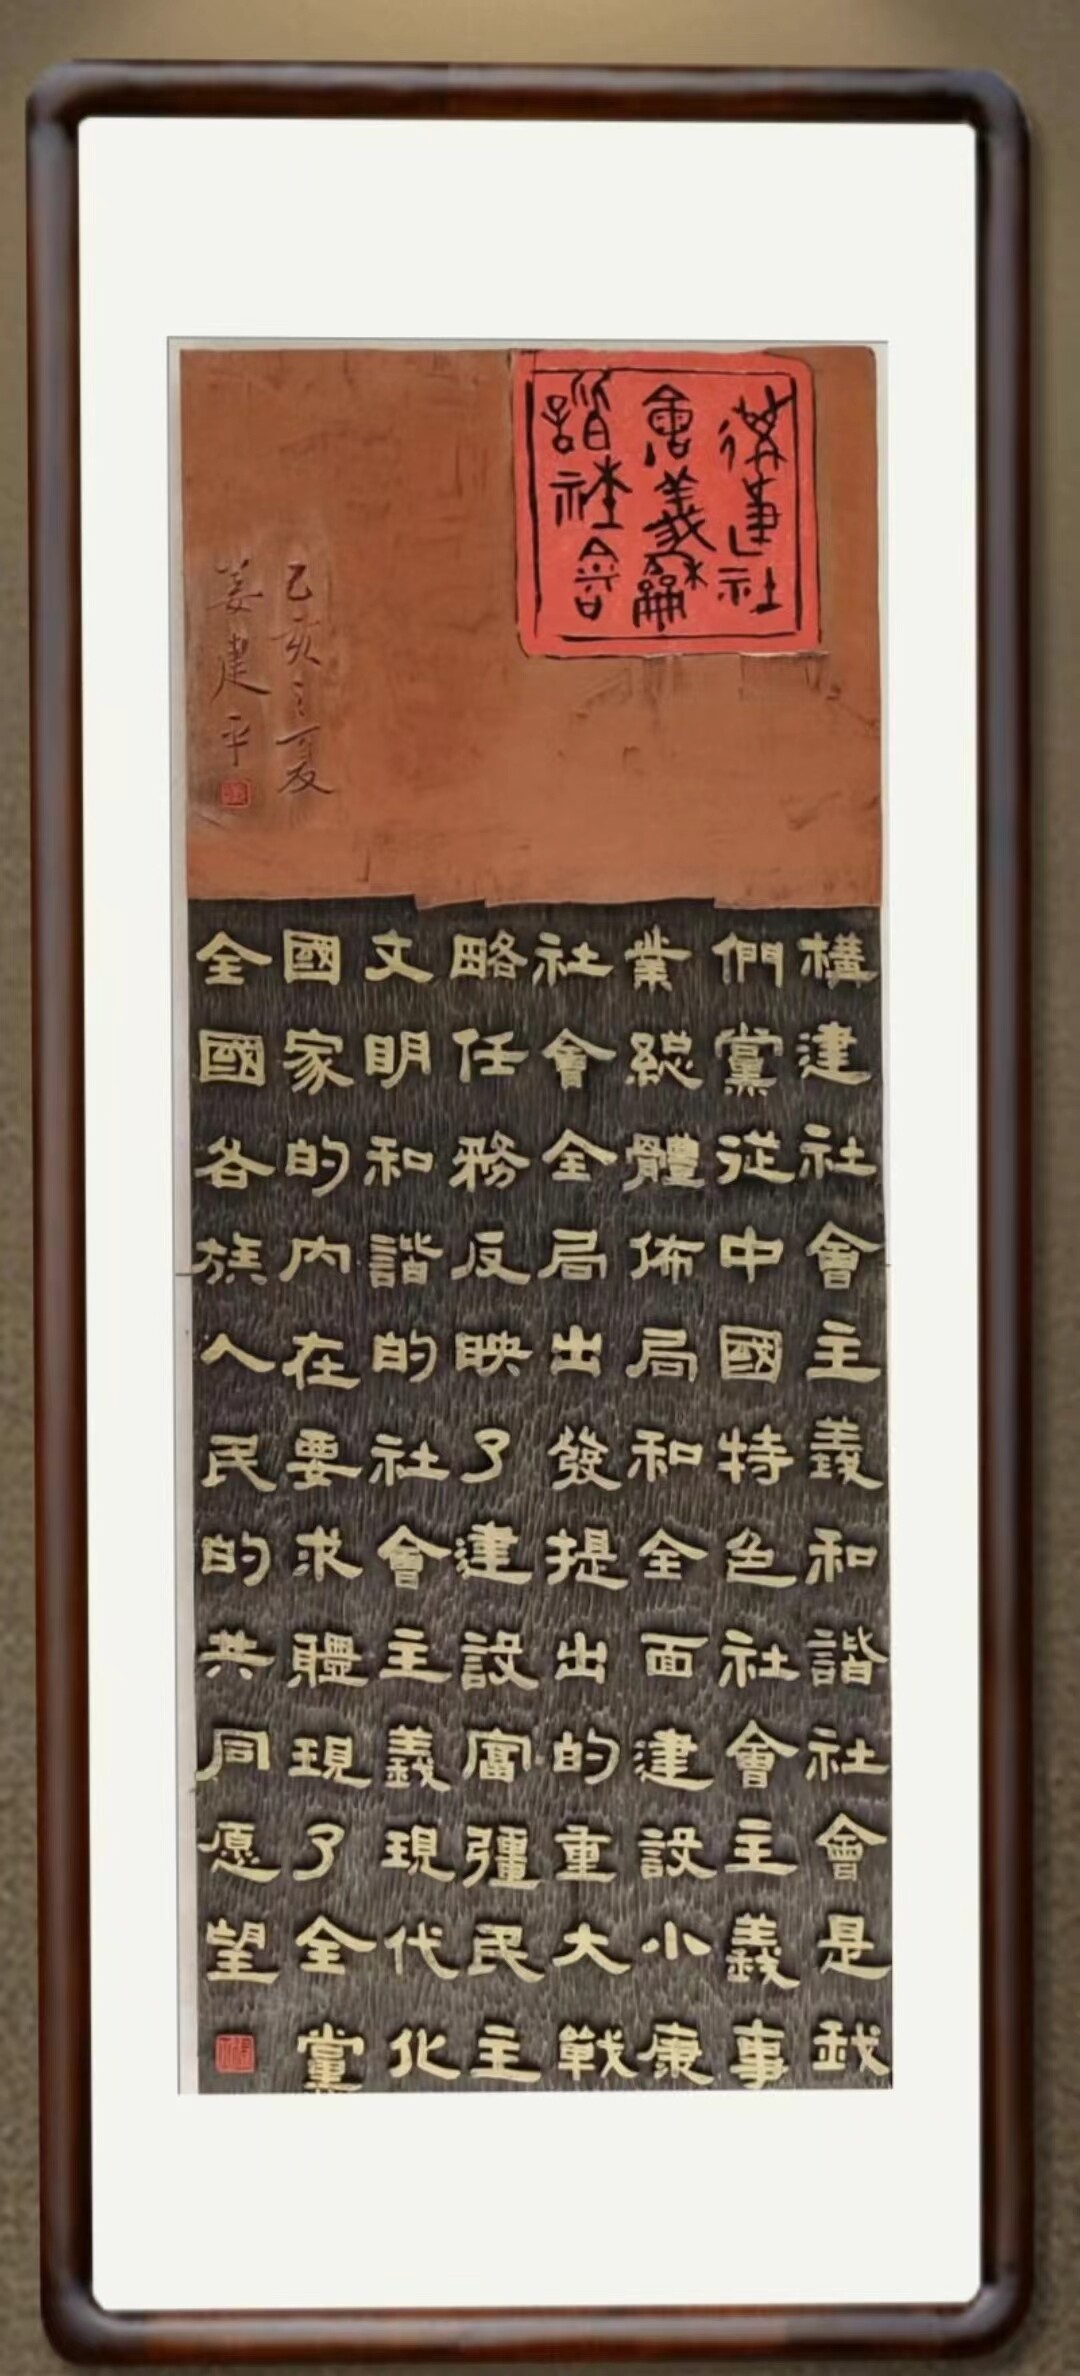 構建社
會義龢
諧社會
己亥之夏
姜建平
構建社會主義和諧社會是我
們黨從中國特色社會主義事
業總體佈局和全面建設小康
社會全局出發提出的重大戰
略任務反映了建設富彊民主
文明和諧的社會主義現代化
國家的内在要求體現了全黨
全國各族人民的共同愿望